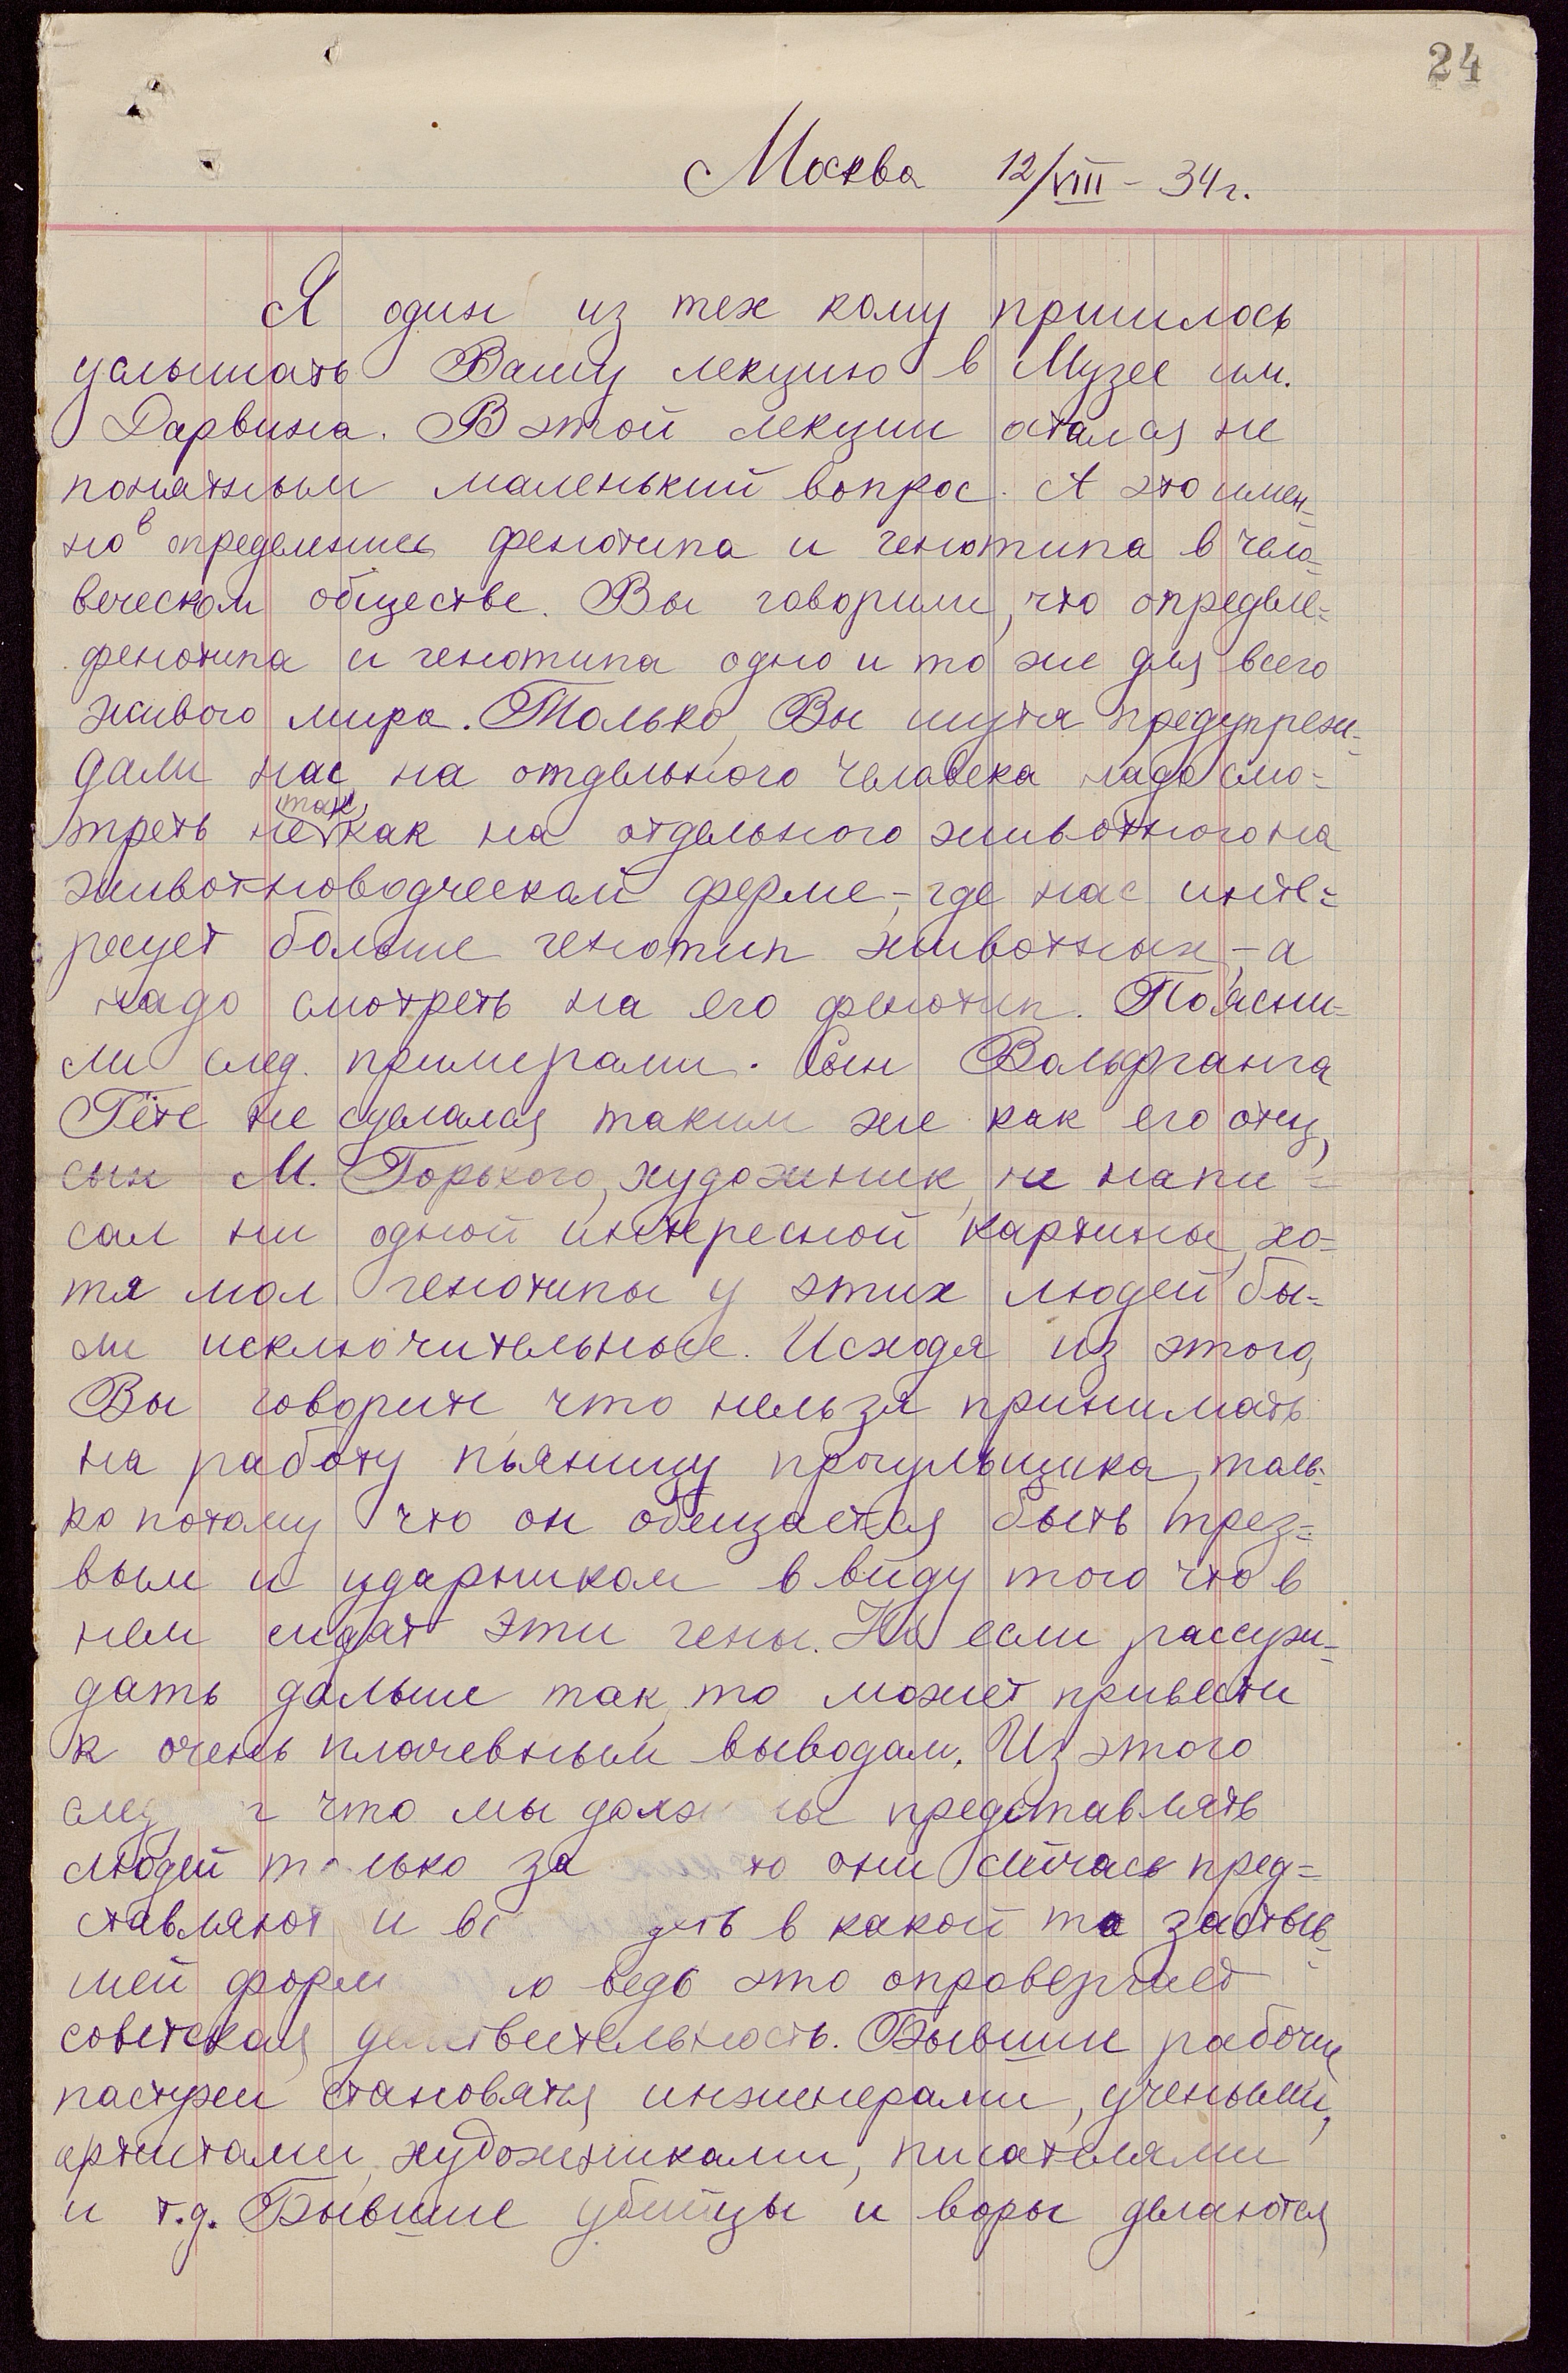 24
Москва 12/VIII - 34 г.
Я один из тех кому пришлось
услышать Вашу лекцию в Музее им.
Дарвина. В этой лекции остался не
понятным маленький вопрос. А это имен-
но в определении фенотипа и генотипа в чело-
веческом обществе. Вы говорили, что определе-
фенотипа и генотипа одно и то же для всего
живого мира. Только, Вы шутя предупреж-
дали нас на отдельного человека надо смо-
треть не так как на отдельного животного на
животноводческой ферме, - где нас инте-
ресует больше генотип животных, - а
надо смотреть на его фенотип. Поясни-
ли след. примерами. Сын Вольфганга
Гёте не сделался таким же как его отец,
сын М. Горького, художник, не напи-
сал ни одной интересной картины, хо-
тя мол генотипы у этих людей бы-
ли исключительные. Исходя из этого,
Вы говорите что нельзя принимать
на работу пьяницу прогульщика, толь-
ко потому что он обещается быть трез-
вым и ударником в виду того что в
нем сидят эти гены. Но если рассуж-
дать дальше так, то может привести
к очень плачевным выводам. Из этого
след т что мы долж ны представлять
людей только за то они сейчас пред-
ставляют и вс деть в какой то застыв-
шей форм о ведь это опровергает
советская действительность. Бывшие рабочие
пастухи становятся инженерами, учеными,
артистами, художниками, писателями
и т.д. Бывшие убийцы и воры делаются